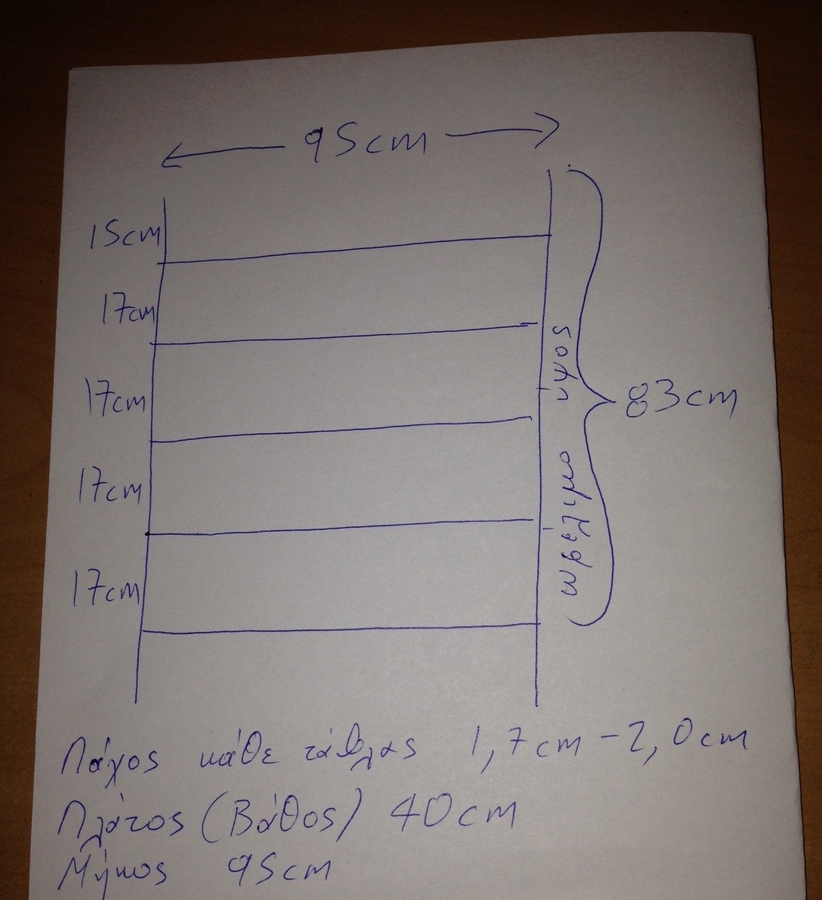 95cm
15cm
17cm
17cm
17cm
17cm
ωφέλιμο ύψος
83cm
Πάχος κάθε τάβλας 1,7cm-2,0cm
Πλάτος (Βάθος) 40cm
Μήκος 95cm